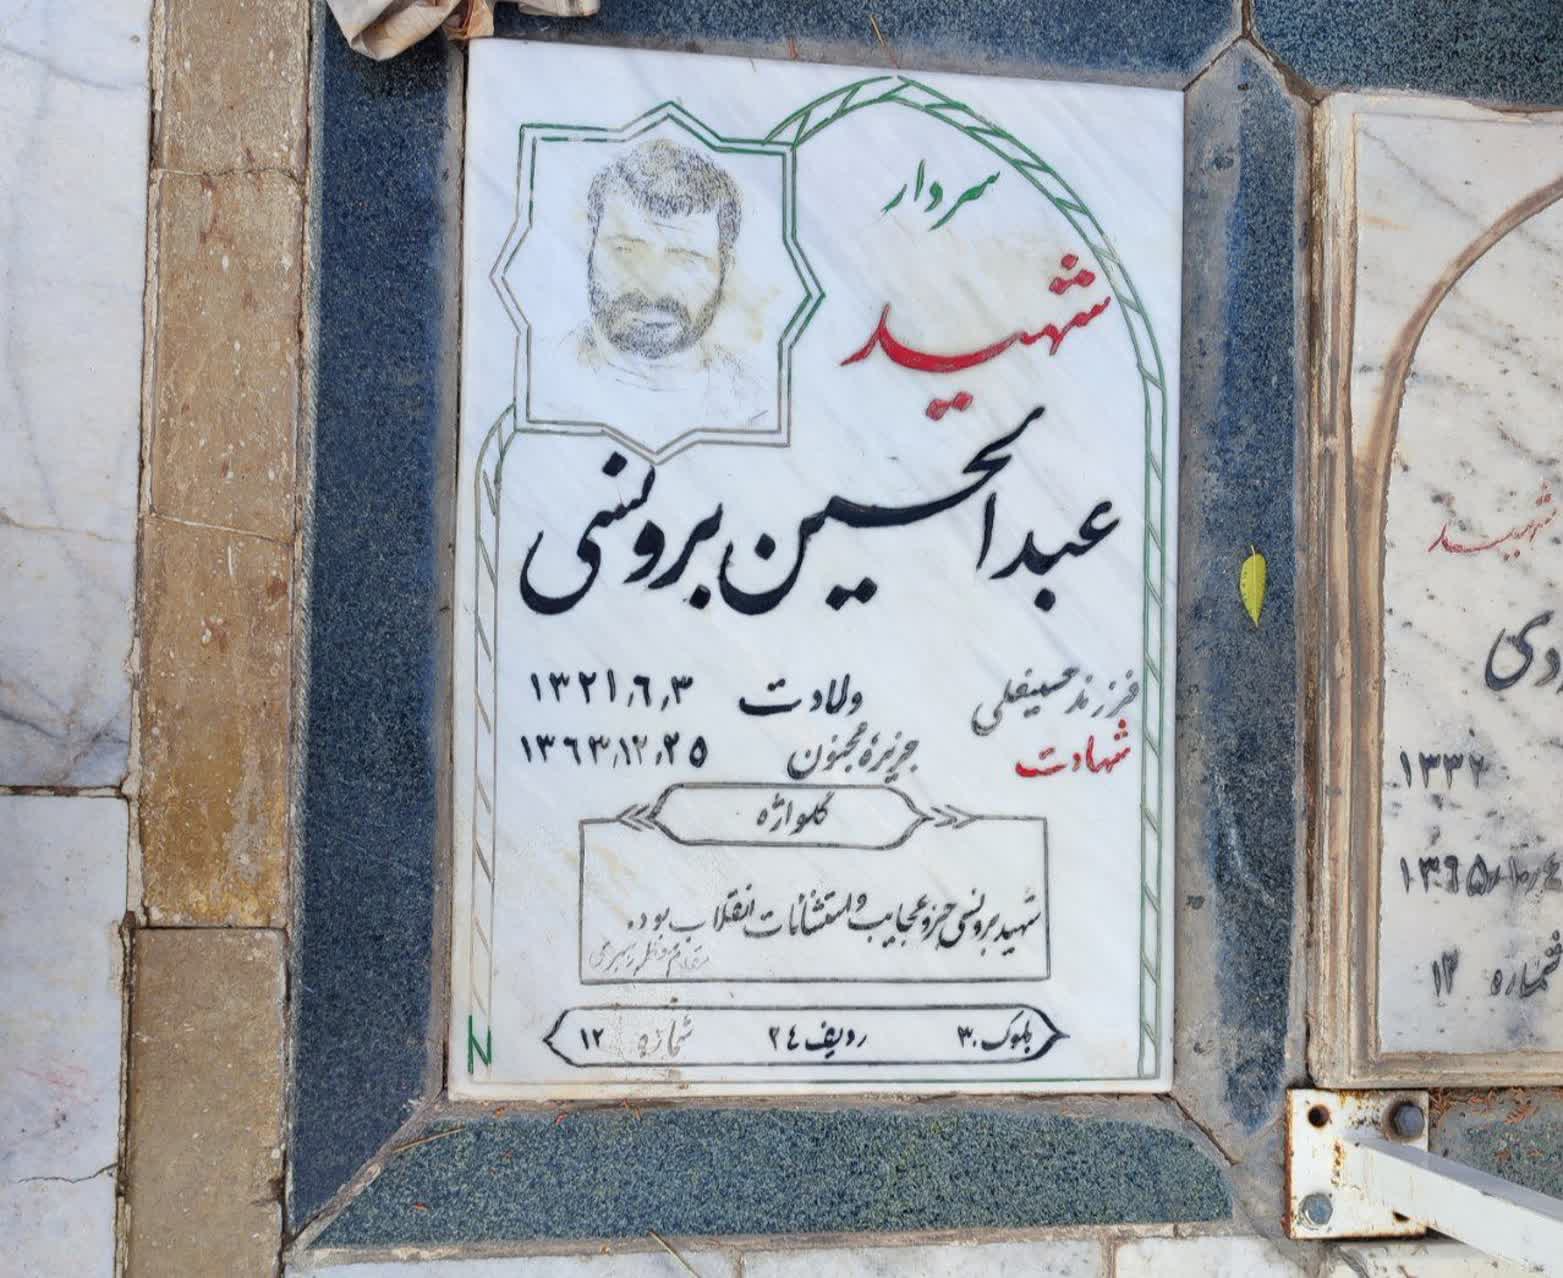 سردار
شهید
عبدالحسین برونسی
فرزند حسینعلی ولادت ۱۳۲۱٫۶٫۳
شهادت جزیرهٔ مجنون ۱۳۶۳٫۱۲٫۲۵
گلواژه
شهید برونسی جزو عجایب و استثنائات انقلاب بود.
مقام معظم رهبری
بلوک ۳۰ ردیف ۲٤ شماره ۱۲
شهید
دی
۱۳۳۲
شماره ۱۲